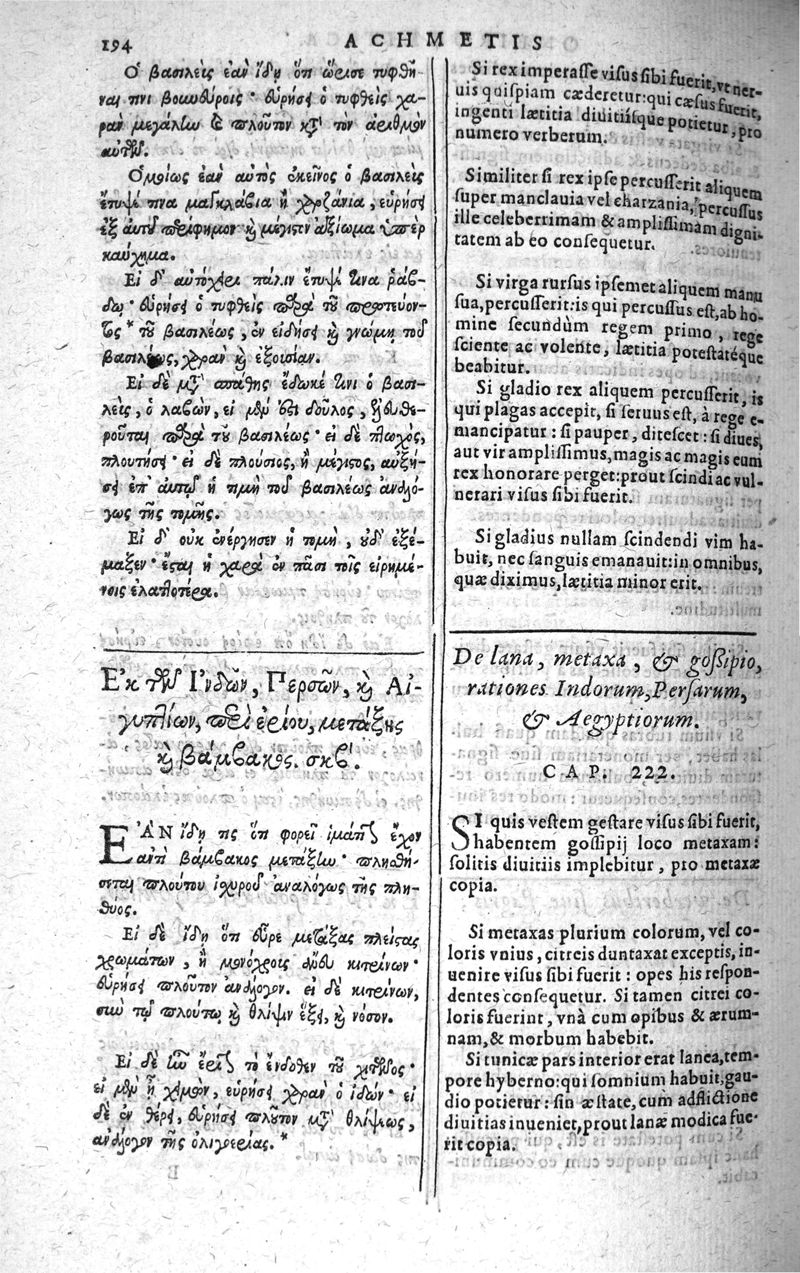 194
ACHMETIS
Ὁ βασιλεὺς ἐὰν ἴδῃ ὅτι ὥρισε τυφθῆ-
ναί τινι βουνεύροις· εὑρήσει ὁ τυφθεὶς χα-
ρὰν μεγάλην καὶ πλοῦτον κατὰ τὸν ἀριθμὸν
αὐτῶν.
Ὁμοίως ἐὰν αὐτὸς ἐκεῖνος ὁ βασιλεὺς
ἔτυψέ τινα μαγκλάβια ἢ χαρζάνια, εὑρήσει
ἐξ αὐτοῦ περίφημον καὶ μέγιστον ἀξίωμα ὑπὲρ
καύχημα.
Εἰ δ' αὐτόχειρ πάλιν ἔτυψέ τινα ῥάβ-
δῳ· εὑρήσει ὁ τυφθεὶς παρὰ τοῦ πρωτεύον-
τος* τοῦ βασιλέως, ἐν εἰδήσει καὶ γνώμῃ τοῦ
βασιλέως, χαρὰν καὶ ἐξουσίαν.
Εἰ δὲ μετὰ σπάθης ἔδωκέ τινι ὁ βασι-
λεὺς, ὁ λαβὼν, εἰ μὲν ἐστὶ δοῦλος, ἐλευθε-
ροῦται παρὰ τοῦ βασιλέως· εἰ δὲ πτωχὸς,
πλουτήσει· εἰ δὲ πλούσιος, ἢ μέγιστος, αὐξή-
σει ἐπ' αὐτῷ ἡ τιμὴ τοῦ βασιλέως ἀναλό-
γως τῆς τομῆς.
Εἰ δ' οὐκ ἐνέργησεν ἡ τομὴ, οὐδ' ἐξέ-
μαξεν· ἔσται ἡ χαρὰ ἐν πᾶσι τοῖς εἰρημέ-
νοις ἐλαττοτέρα.
Ἐκ τῶν Ἰνδῶν, Περσῶν, καὶ Αἰ-
γυπτίων, περὶ ἐρίου, μετάξης
καὶ βάμβακος. σκβ'.
ἘΑΝ ἴδῃ τις ὅτι φορεῖ ἱμάτιον ἔχον
ἀντὶ βάμβακος μετάξην· πλησθή-
σεται πλούτου ἰσχυροῦ ἀναλόγως τῆς πλη-
θύος.
Εἰ δὲ ἴδῃ ὅτι εὗρε μετάξας πλείστας
χρωμάτων, ἢ μονόχροις ἄνευ κιτρίνων·
εὑρήσει πλοῦτον ἀνάλογον. εἰ δὲ κιτρίνων,
σὺν τῷ πλούτῳ καὶ θλίψιν ἕξει, καὶ νόσον.
Εἰ δὲ ἦν ἔριον τὸ ἔνδοθεν τοῦ χιτῶνος·
εἰ μὲν ἦ χειμὼν, εὑρήσει χαρὰν ὁ ἰδών· εἰ
δὲ ἐν θέρει, εὑρήσει πλοῦτον μετὰ θλίψεως,
ἀνάλογον τῆς ὀλιγερίας.*
Si rex imperasse visus sibi fuerit, vt ner-
uis quispiam cæderetur: qui cæsus fuerit,
ingenti lætitia diuitiisque potietur, pro
numero verberum.
Similiter si rex ipse percusserit aliquem
super manclauia vel charzania, percussus
ille celeberrimam & amplissimam digni-
tatem ab eo consequetur.
Si virga rursus ipsemet aliquem manu
sua, percusserit: is qui percussus est, ab ho-
mine secundùm regem primo, rege
sciente ac volente, lætitia potestatéque
beabitur.
Si gladio rex aliquem percusserit, is
qui plagas accepit, si seruus est, à rege e-
mancipatur: si pauper, ditescet: si diues,
aut vir amplissimus, magis ac magis eum
rex honorare perget: prout scindi ac vul-
nerari visus sibi fuerit.
Si gladius nullam scindendi vim ha-
buit, nec sanguis emanauit: in omnibus,
quæ diximus, lætitia minor erit.
De lana, metaxa, & gossipio,
rationes Indorum, Persarum,
& Aegyptiorum.
CAP. 222.
SI quis vestem gestare visus sibi fuerit,
habentem gossipij loco metaxam:
solitis diuitiis implebitur, pro metaxæ
copia.
Si metaxas plurium colorum, vel co-
loris vnius, citreis duntaxat exceptis, in-
uenire visus sibi fuerit: opes his respon-
dentes consequetur. Si tamen citrei co-
loris fuerint, vnà cum opibus & ærum-
nam, & morbum habebit.
Si tunicæ pars interior erat lanea, tem-
pore hyberno: qui somnium habuit, gau-
dio potietur: sin æstate, cum adflictione
diuitias inueniet, prout lanæ modica fue-
rit copia.